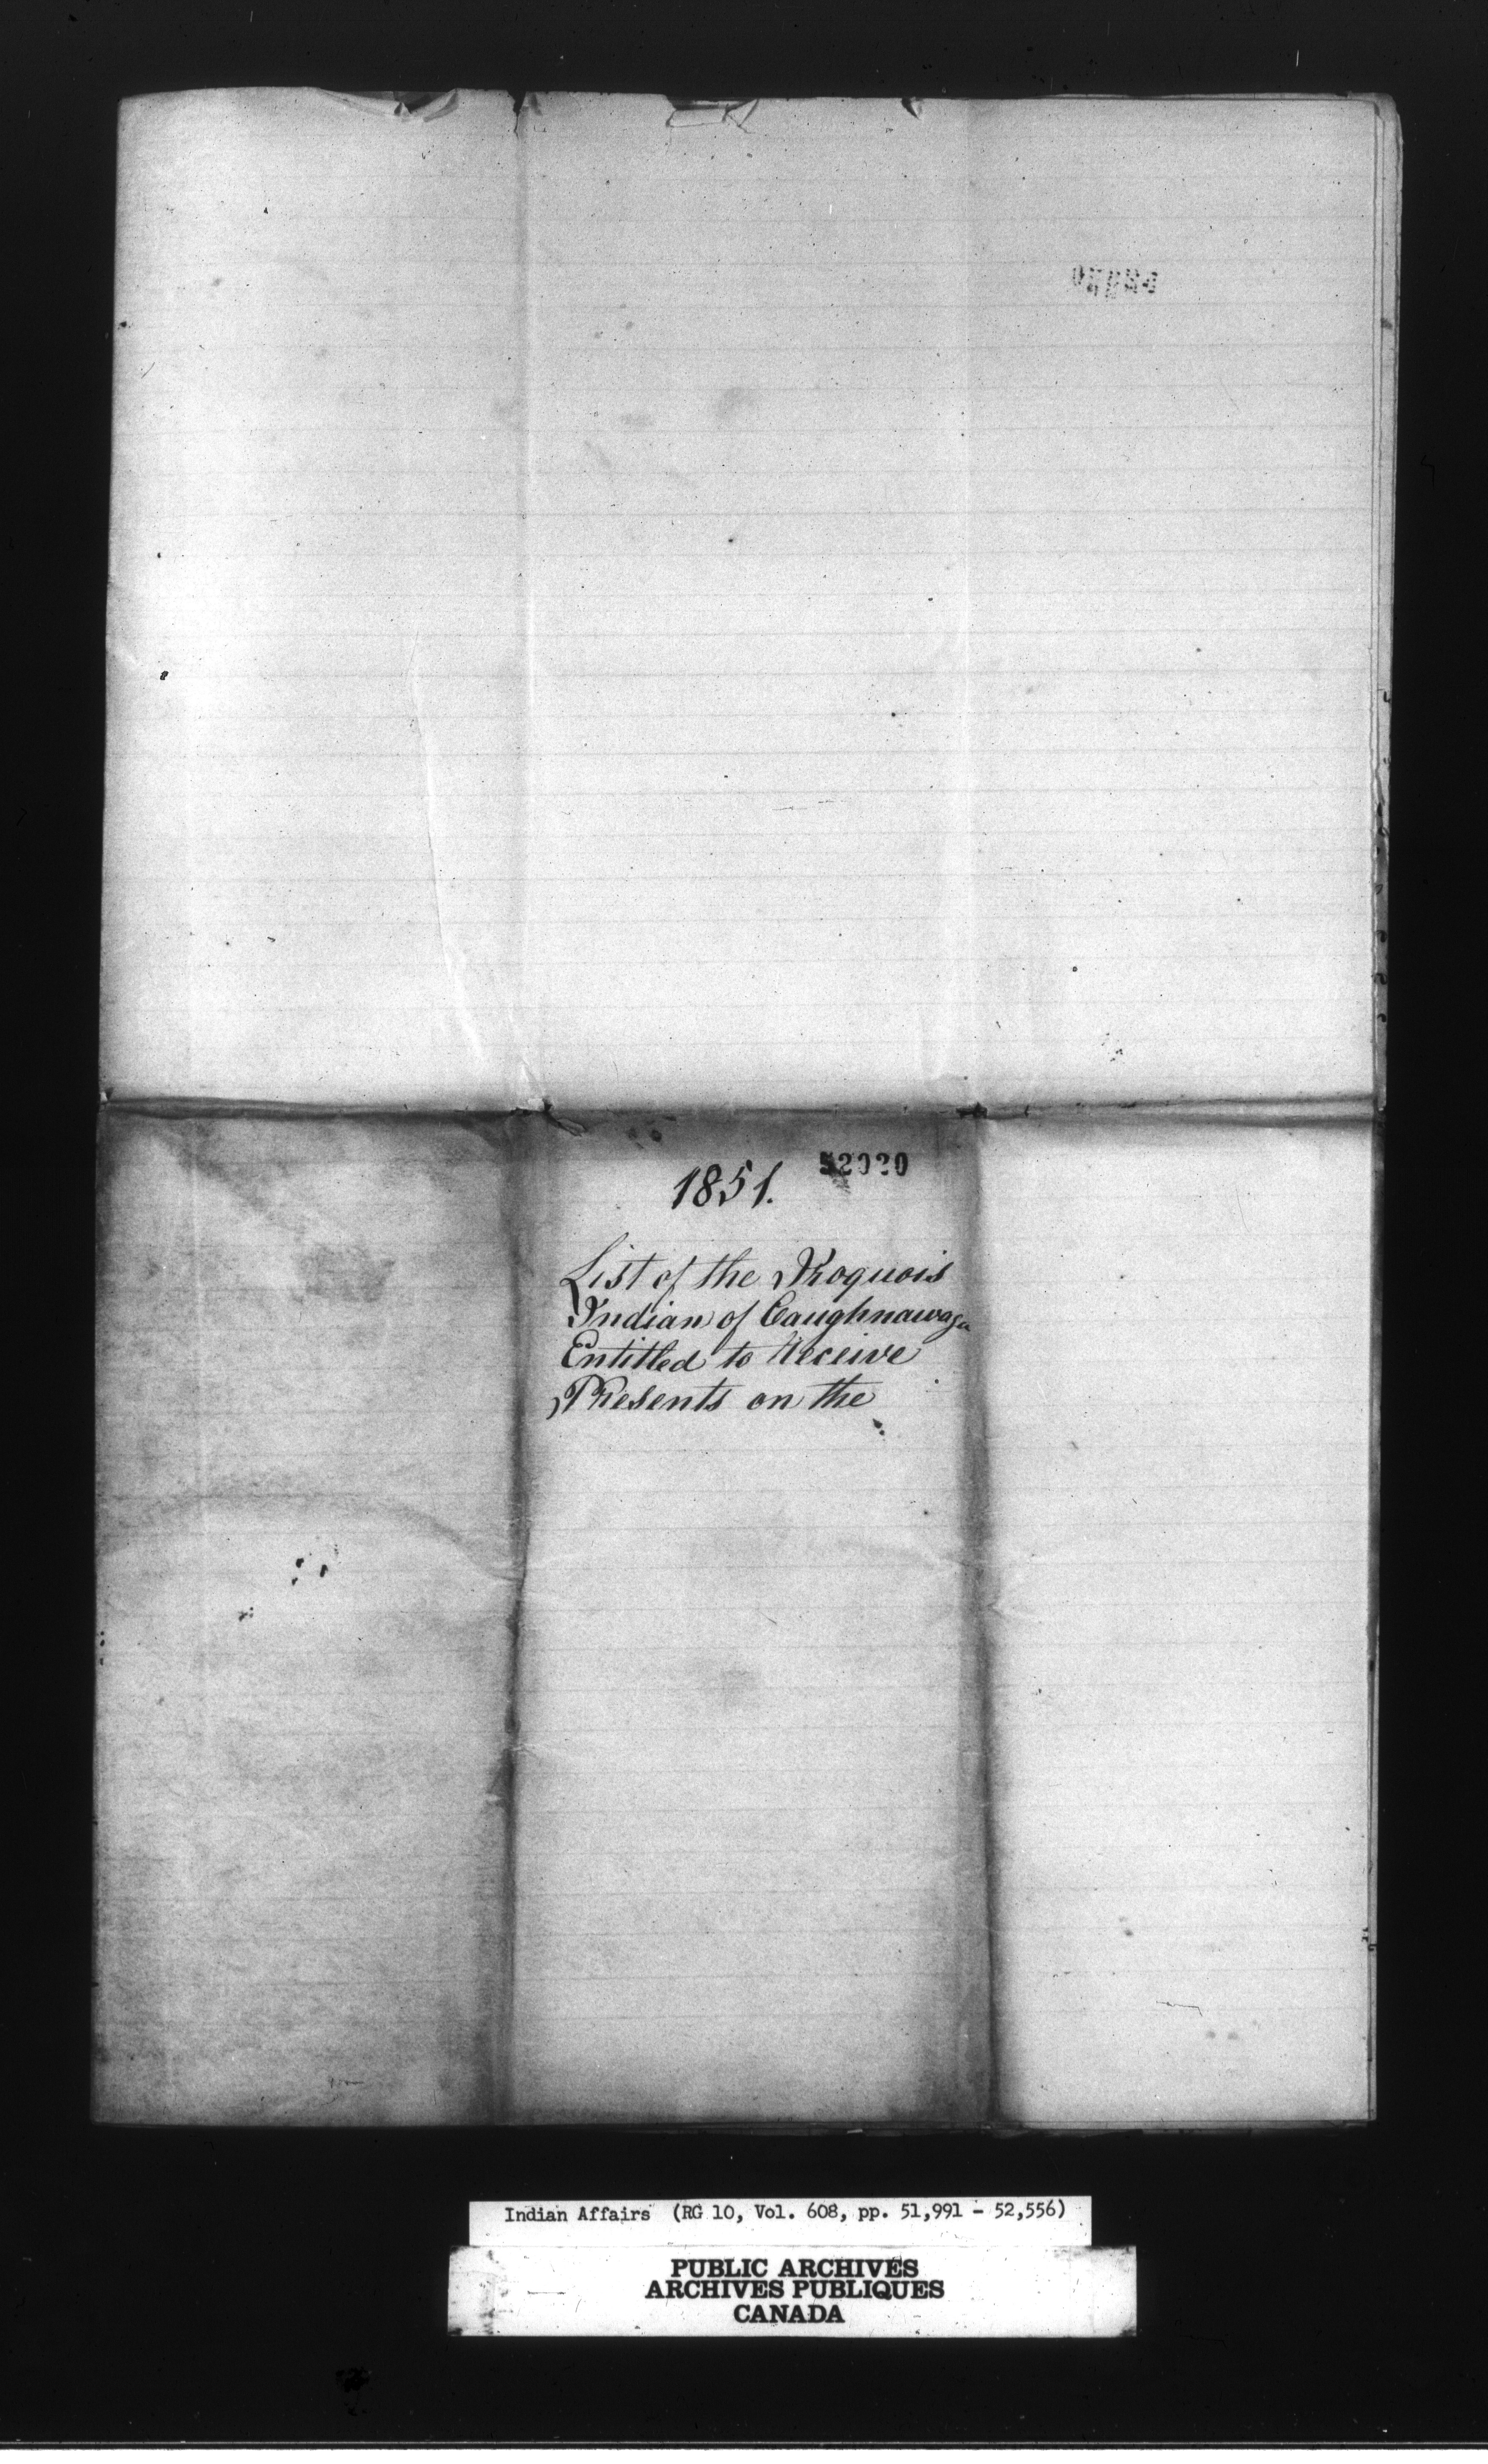 1851.
52020
List of the Iroquois
Indian of Caughnawaga
Entitled to Receive
Presents on the
Indian Affairs (RG 10, Vol. 608, pp. 51,991 - 52,556)
PUBLIC ARCHIVES
ARCHIVES PUBLIQUES
CANADA